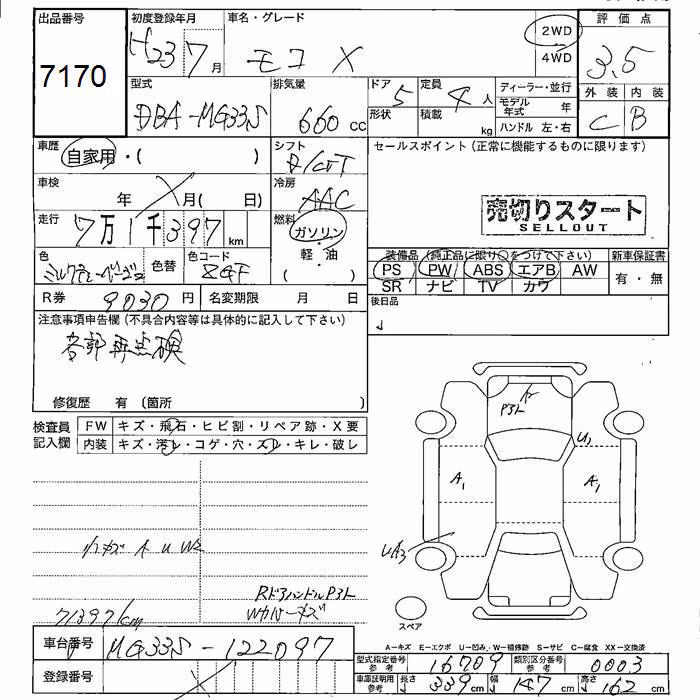 出品番号
7170
初度登録年月
H23 7月
車名・グレード
モコ X
2WD
4WD
評価点
3.5
外装 内装
C B
型式
DBA-MG33S
排気量
660 cc
ドア 5
形状
定員 4人
積載 kg
ディーラー・並行
モデル年式 年
ハンドル 左・右
車歴
自家用・( )
シフト
車検 年 月( 日)
冷房
AAC
走行
7万1千397km
燃料
ガソリン
軽・油
( )
色
ミルクティーベージュ
色替
色コード
R券 9030円
名変期限 月 日
セールスポイント(正常に機能するものに限ります)
売切りスタート
SELLOUT
装備品(純正品に限り○をつけて下さい)
PS PW ABS エアB AW
SR ナビ TV カワ
新車保証書
有・無
後日品
注意事項申告欄(不具合内容等は具体的に記入して下さい)
各部再点検
修復歴 有(箇所
検査員記入欄
FW キズ・飛石・ヒビ割・リペア跡・X要
内装 キズ・汚レ・コゲ・穴・スレ・キレ・破レ
小キズ A U W2
Rドアハンドル P3ト
71397km
P3ト
U1
A1
A1
UA3
スペア
A-キズ E-エクボ U-凹み W-補修跡 S-サビ C-腐食 XX-交換済
車台番号 MG33S-122097
登録番号
型式指定番号参考 16709
類別区分番号参考 0003
車庫証明用参考 長さ 339cm 幅 147cm 高さ 162cm